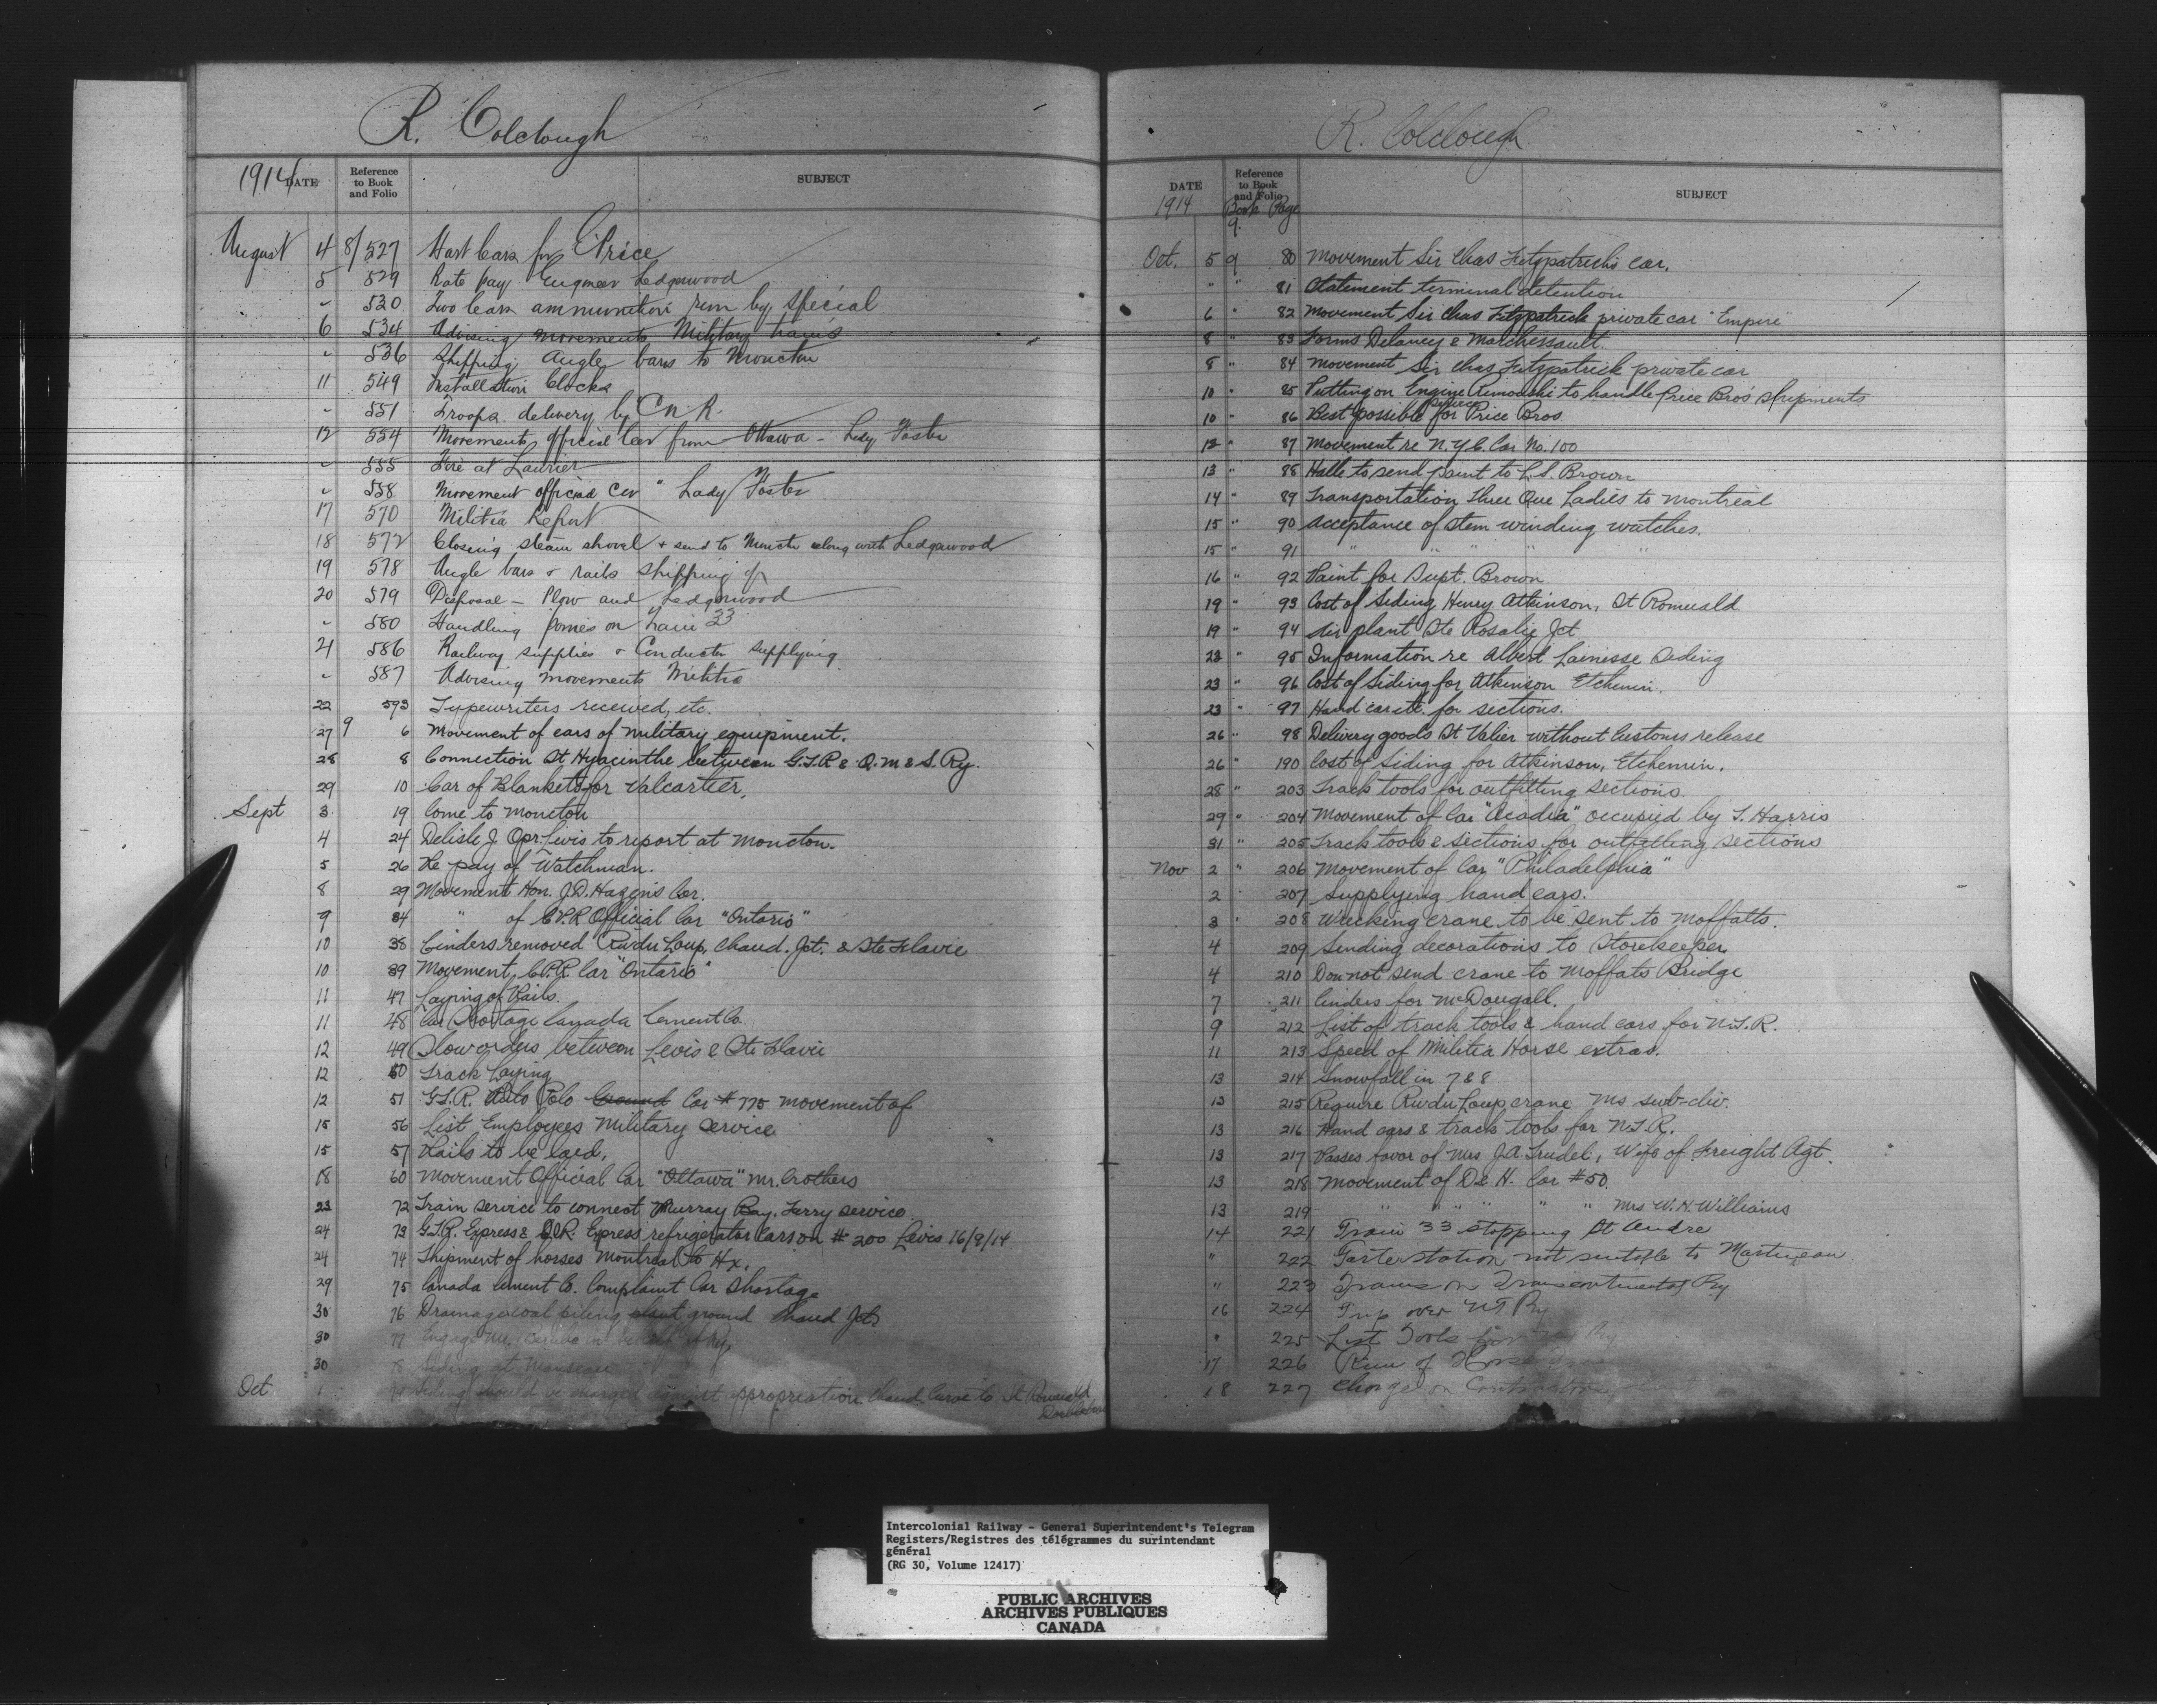 R. Colclough
1914 DATE Reference to Book and Folio SUBJECT
August 4 8/527 Hart Cars for Price
5 529 Rate pay Engineer Ledgerwood
" 530 Two Cars ammunition run by Special
6 534 Advising movements Military trains
" 536 Shipping Angle bars to Moncton
11 549 Installation Clocks
" 551 Troops delivery by C.N.R.
12 554 Movements official Car from Ottawa - Lady Foster
" 555 Fire at Laurier
" 558 Movement official Car " Lady Foster
17 570 Militia Report
18 572 Closing steam shovel & send to Moncton along with Ledgerwood
19 578 Angle bars & rails shipping of
20 579 Disposal - Plow and Ledgerwood
" 580 Handling ponies on train 33
21 586 Railway supplies & Conductor supplying
" 587 Advising movements Militia
22 593 Typewriters received, etc.
27 9 6 Movement of cars of military equipment.
28 8 Connection St Hyacinthe between G.T.R & Q.M & S. Ry.
29 10 Car of Blankets for Valcartier.
Sept 3 19 Come to Moncton
4 24 Delisle J. Opr. Levis to report at Moncton.
5 26 Re pay of Watchman.
8 29 Movement Hon. J.D. Hazen's Car.
9 34 " of C.P.R Official Car "Ontario"
10 38 Cinders removed Riv du Loup, Chaud. Jct. & Ste Flavie
10 39 Movement C.P.R. Car "Ontario"
11 47 Laying of Rails.
11 48 Car Shortage Canada Cement Co.
12 49 Slow orders between Levis & Ste Flavie
12 50 Track Laying
12 51 G.T.R. Polo Ground Car # 775 movement of
15 56 List Employees Military Service
15 57 Rails to be laid.
18 60 Movement Official Car "Ottawa" Mr. Crothers
23 72 Train service to connect Murray Bay, Ferry service
24 73 G.T.R. Express & Express refrigerator cars on # 200 Levis 16/9/14
24 74 Shipment of horses Montreal to Hx.
29 75 Canada Cement Co. Complaint Car Shortage
30 76 Drainage coal piling plant ground Chaud Jct.
30 77 Engage
30 78 Siding at Manseau
Oct 1 should be charged against appropriation Chaud Curve to St Romuald
R. Colclough
DATE 1914 Reference to Book and Folio Book Page SUBJECT
9
Oct. 5 9 80 Movement Sir Chas Fitzpatrick's car.
" " 81 Statement terminal detention
6 " 82 Movement Sir Chas Fitzpatrick private car "Empire"
8 " 83 Forms Delaney & Marchessault.
8 " 84 Movement Sir Chas Fitzpatrick private car
10 " 85 Putting on Engine Rimouski to handle Price Bro's Shipments
10 " 86 Best possible service for Price Bros.
12 " 87 Movement re N.Y.C. Car No. 100
13 " 88 Halle to send paint to L.S. Brown
14 " 89 Transportation three Que Ladies to Montreal
15 " 90 Acceptance of stem winding watches.
15 " 91 " " " " "
16 " 92 Paint for Supt. Brown
19 " 93 Cost of Siding Henry Atkinson, St Romuald
19 " 94 Air plant Ste Rosalie Jct
22 " 95 Information re Albert Lainesse Siding
23 " 96 Cost of Siding for Atkinson Etchemin.
23 " 97 Hand car etc. for sections.
26 " 98 Delivery goods St Valier without Customs release
26 " 190 Cost of Siding for Atkinson, Etchemin.
28 " 203 Track tools for outfitting sections.
29 " 204 Movement of Car "Acadia" occupied by T. Harris
31 " 205 Track tools & sections for outfitting sections
Nov 2 " 206 Movement of Car "Philadelphia"
2 " 207 Supplying hand cars.
3 " 208 Wrecking crane to be sent to Moffatts.
4 209 Sending decorations to Storekeeper
4 210 Don not send crane to Moffats Bridge
7 211 Cinders for McDougall.
9 212 List of track tools & hand cars for N.T.R.
11 213 Speed of Militia Horse extras.
13 214 Snowfall in 7 & 8
13 215 Require Riv du Loup crane Ms sub-div.
13 216 Hand cars & track tools for N.T.R.
13 217 Passes favor of Mrs J.A. Trudel, Wife of Freight Agt.
13 218 Movement of D & H. Car #50.
13 219 " " " " " Mrs W.H. Williams
14 221 Train 33 stopping St Andre
" 222 station not suitable to
" 223 Trains on Transcontinental Ry
16 224 Trip over NT Ry
" 225 List Tools for Ry
17 226 Run of Horse
18 227 Charge on
Intercolonial Railway - General Superintendent's Telegram
Registers/Registres des télégrammes du surintendant
général
(RG 30, Volume 12417)
PUBLIC ARCHIVES
ARCHIVES PUBLIQUES
CANADA